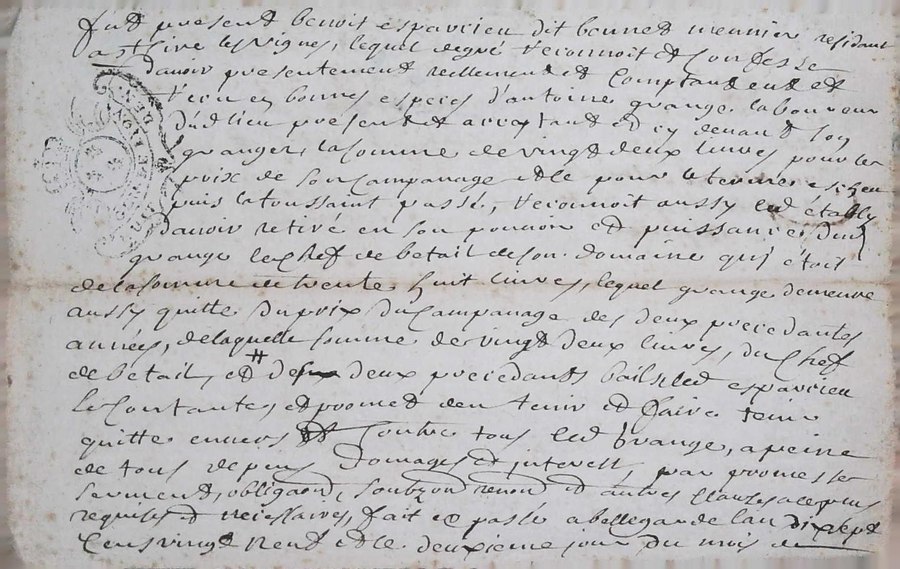 fut present benoit esparcieu dit bonnet meunier residant
a st Cire les vignes, lequel degré reconnoit et Confesse
davoir presentement reellement et Comptant eut et
receu en bonnes especes d'antoine grange laboureur
dud lieu present et acceptant et cy devant son
granger, la somme de vingt deux livres pour le
prix de son Campanage et le pour le terme escheu
puis la toussaint passé, reconnoit aussy led établly
davoir retiré en son pouvoir et puissance dud
grange le Chef de betail de son domaine qui etoit
de la somme de trente huit livres, lequel grange demeure
aussy quitte du prix du Campanage des deux precedantes
années, de laquelle somme de vingt deux livres, du Chef
de betail, et # deux precedants bails led esparcieu
le Contante, et promet den tenir et faire tenir
quitte envers et Contre tous led grange, a peine
de tous depens domages et interest, par promesse
serment, obligaon, soubzon renon et autres clauses a ce plus
requises et necessaires, fait et passé a bellegarde lan dix sept
Cens vingt neuf et le deuxieme jour du mois de